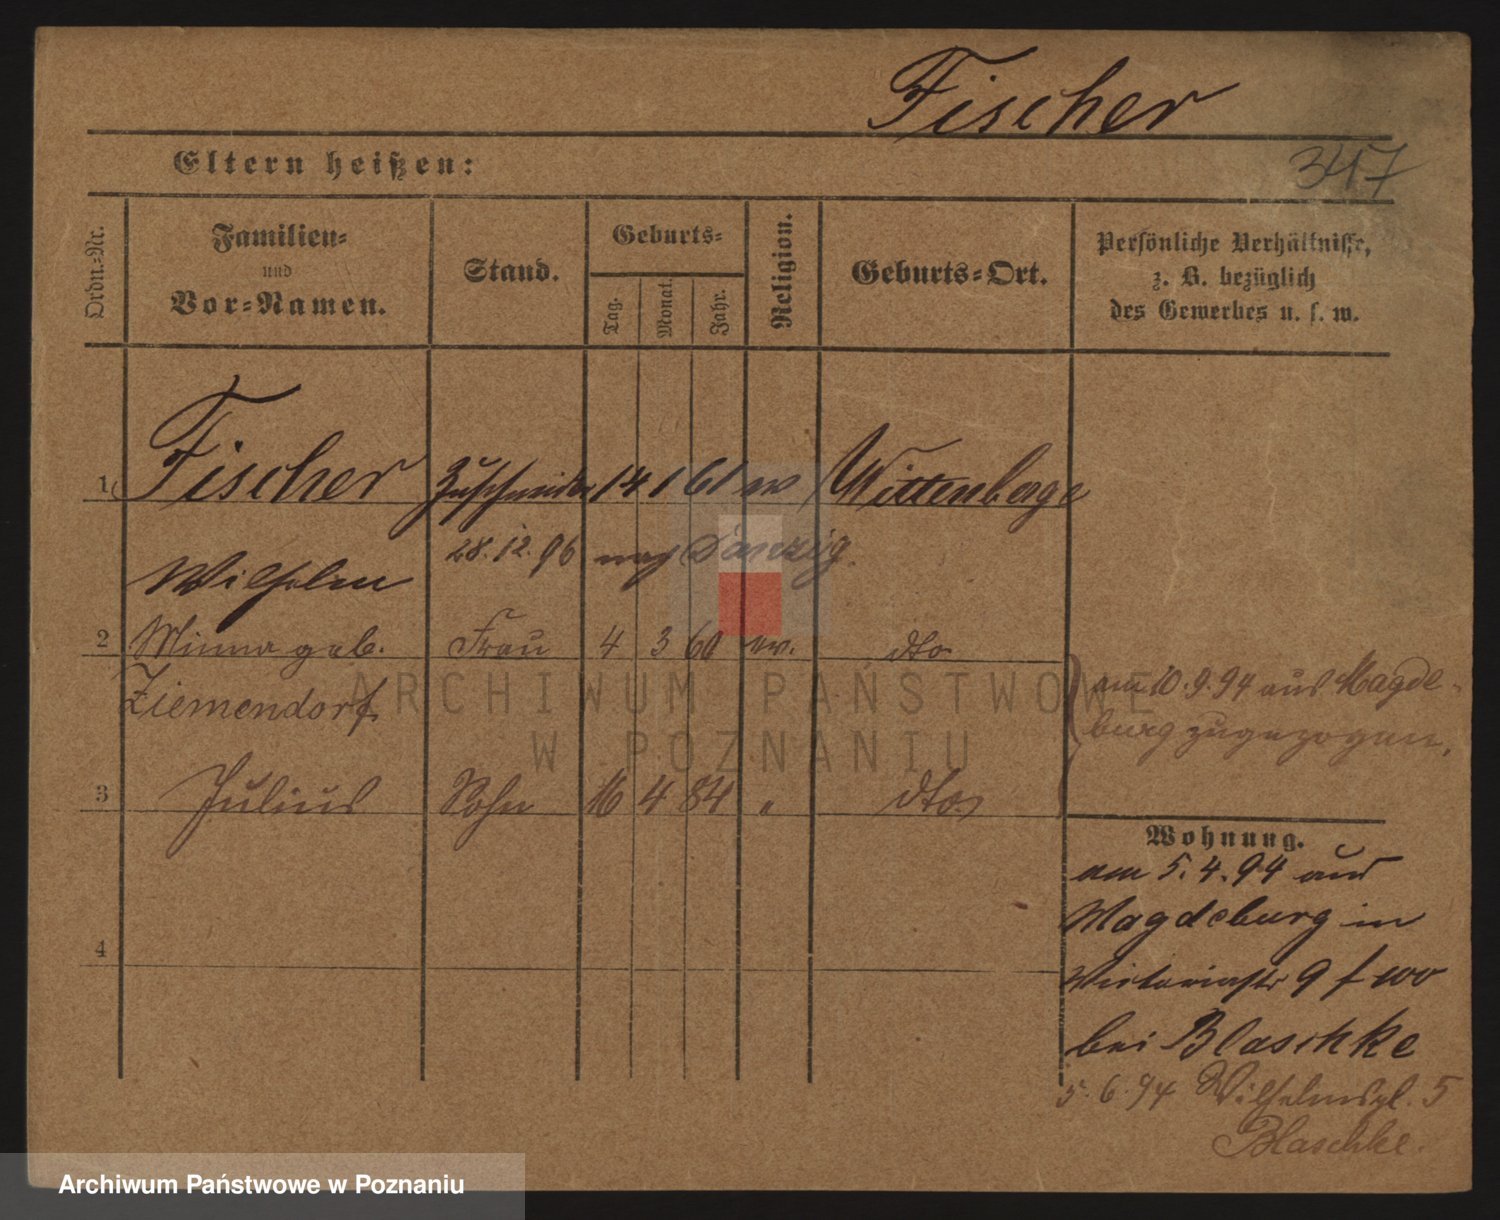 Fischer
Eltern heißen:
347
Ordn.-Nr.
Familien-
und
Vor-Namen.
Stand.
Geburts-
Tag.
Monat.
Jahr.
Religion.
Geburts-Ort.
Persönliche Verhältnisse,
z. B. bezüglich
des Gewerbes u. s. w.
1 Fischer Zuschneider 14 1 61 ev Wittenberge
Wilhelm 28.12.96 nach Danzig.
2 Minna geb. Frau 4 3 60 ev. dto
Ziemendorf
am 10.9.94 aus Magde-
burg zugezogen.
3 Julius Sohn 16 4 84 " dto
4
Wohnung.
am 5.4.94 aus
Magdeburg in
Victoriastr 9
bei Blaschke
5.6.94 Wilhelmspl. 5
Blaschke.
ARCHIWUM PAŃSTWOWE
W POZNANIU
Archiwum Państwowe w Poznaniu